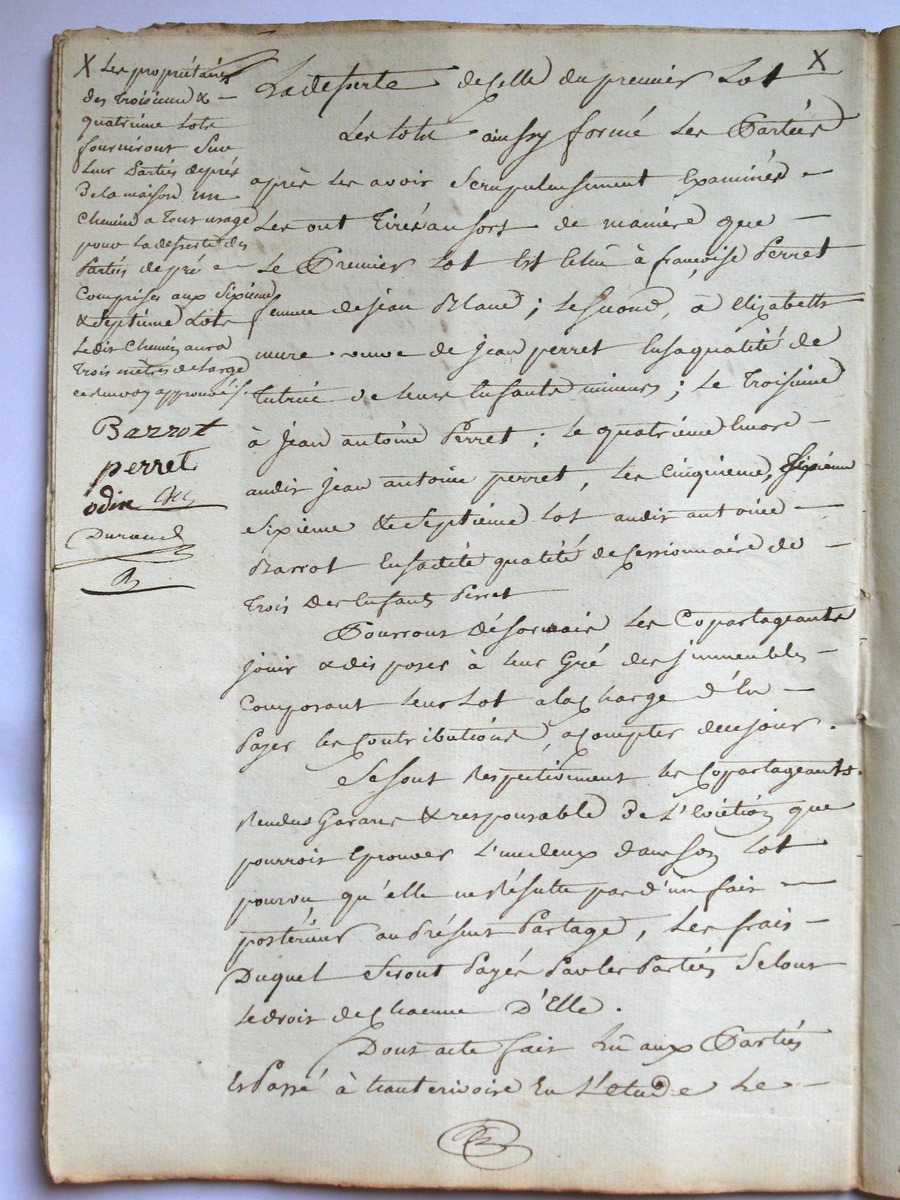 X Les propriétaires
des troisieme &
quatrième Lots
fourniront Sur
leur Parties de prés
de la maison un
Chemin a Tout usage
pour La deserte des
Parties de pré
Comprises aux Sixieme
& Septième Lots
Le dit Chemin aura
Trois mètres de large
approuvés.
Barrot
perret
odin
Durand
La deserte de Celle du premier Lot X
Les lots ainssy formé Les Parties
après Les avoir Scrupuleusement Examinés
Les ont Tirés au sort de manière que
Le Premier Lot Est Echu à françoise Perret
femme de Jean Blanc ; Le Second, à Elizabeth
mure veuve de Jean perret En sa qualité de
Tutrice de leurs Enfants mineurs ; Le Troisième
à Jean antoine Perret ; Le quatrième Encore
audit Jean antoine perret, Les Cinquieme, Sixieme
Sixième & Septième Lot audit antoine
Barrot En sadite qualité de Cessionnaire de
Trois des Enfants Perret
Pourront Désormais Les Copartageants
jouir & disposer à leur Gré des jmmeubles
Composant leur Lot a la Charge d'En
Payer les Contributions, a Compter de ce jour.
Se sont Respectivement les Copartageants
Rendus Garans & responsable de L'Eviction que
pourroit Eprouver L'un deux dans son Lot
pourvu qu'elle ne Résulte pas d'un fait
postérieur au Présent Partage, Les frais
Duquel Seront Payés Par les Parties Selont
Le droit de Chacune D'Elle.
Dont acte fait Lû aux Parties
Et Passé à hauterivoire En L'etude Le